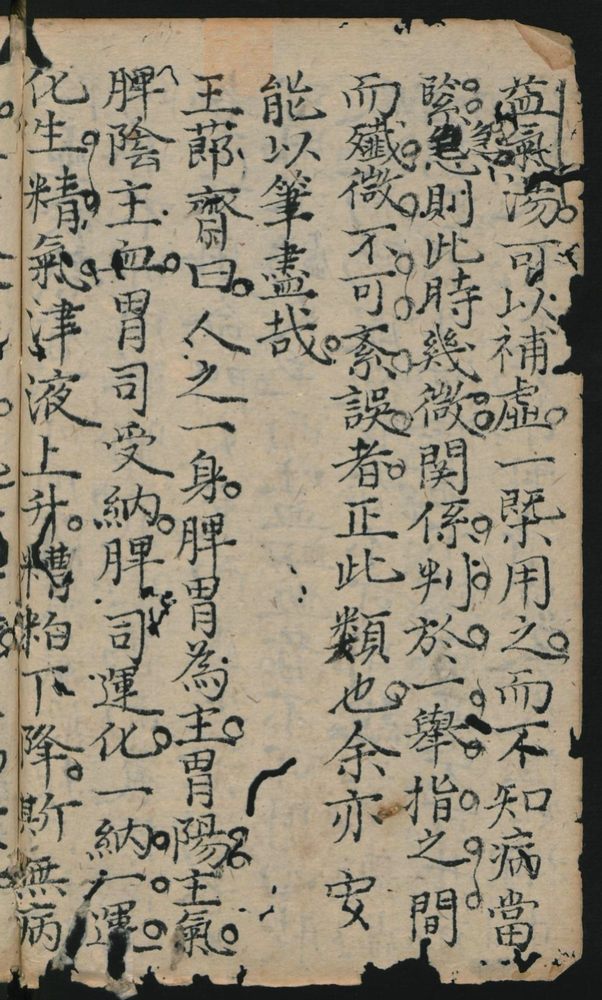 益氣湯可以補虛一槩用之而不知病當
緊急則此時幾微関係判於一舉指之間
而殲微不可紊誤者正此類也余亦安
能以筆盡哉
王節齋曰人之一身脾胃為主胃陽主氣
脾陰主血胃司受納脾司運化一納一運
化生精氣津液上升糟粕下降斯無病